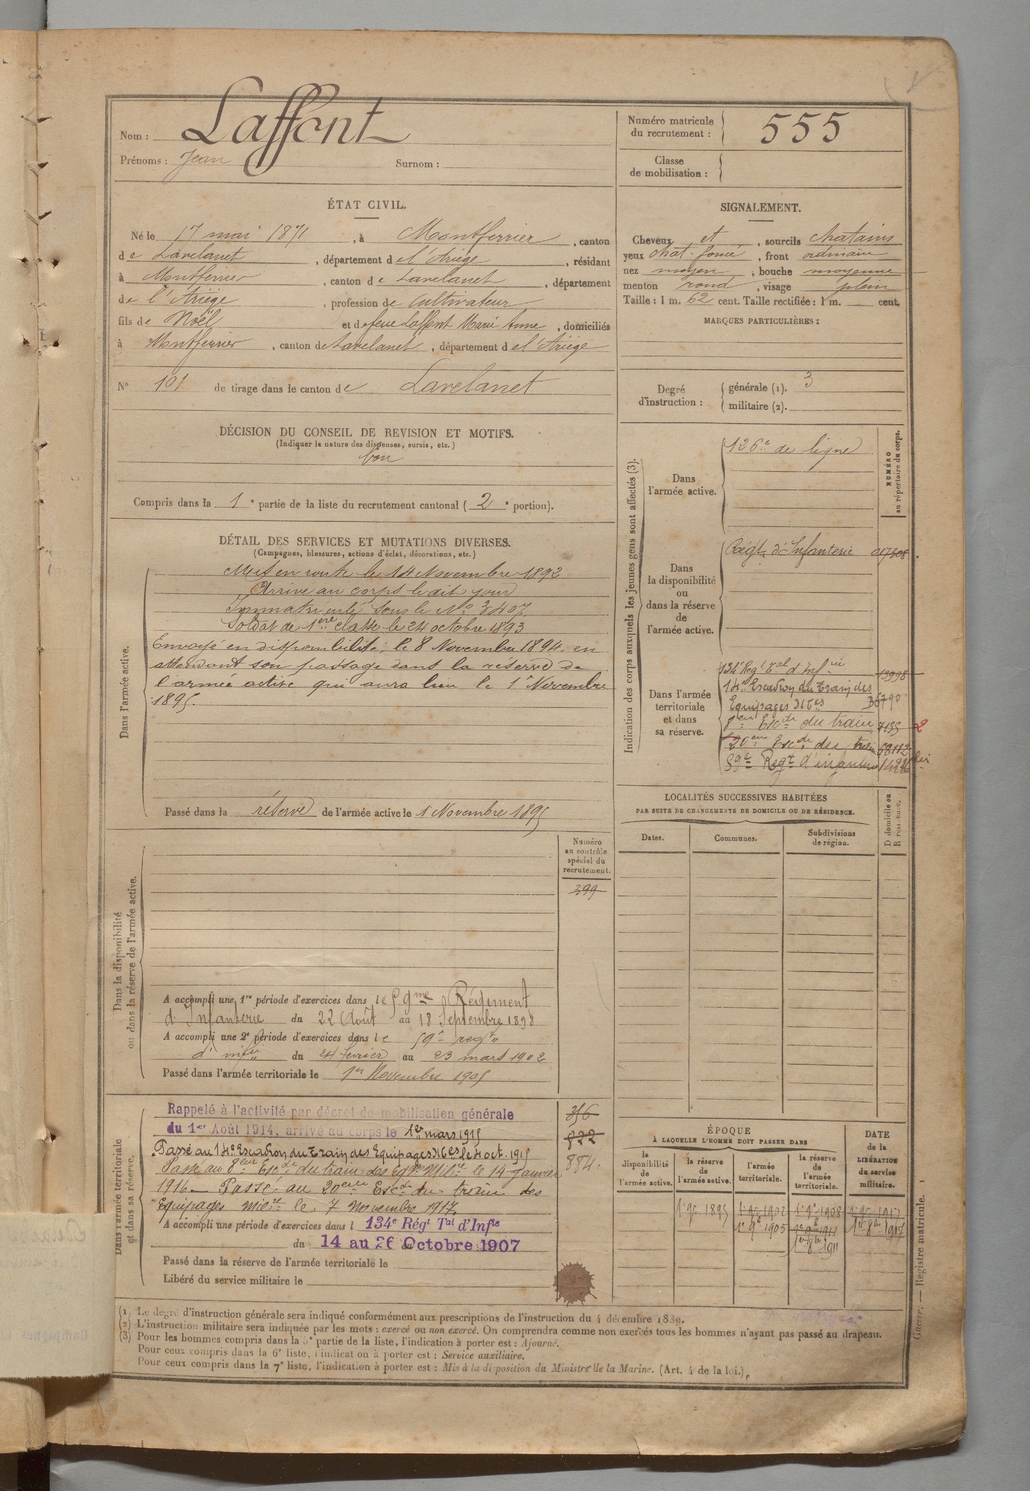 Nom : Laffont
Prénoms : Jean Surnom :
Numéro matricule du recrutement : 555
Classe de mobilisation :
ÉTAT CIVIL.
Né le 17 mai 1871, à Montferrier, canton
de Lavelanet, département de l'Ariège, résidant
à Montferrier, canton de Lavelanet, département
de l'Ariège, profession de Cultivateur
fils de Noël et de feue Laffont Marie Anne, domiciliés
à Montferrier, canton de Lavelanet, département de l'Ariège
N° 101 de tirage dans le canton de Lavelanet
SIGNALEMENT.
Cheveux et, sourcils chatains
yeux chat. foncé, front ordinaire
nez moyen, bouche moyenne
menton rond, visage plein
Taille : 1 m. 62 cent. Taille rectifiée : 1 m. cent.
MARQUES PARTICULIÈRES :
Degré d'instruction : générale (1). 3
militaire (2).
DÉCISION DU CONSEIL DE REVISION ET MOTIFS.
(Indiquer la nature des dispenses, sursis, etc.)
bon
Compris dans la 1e partie de la liste du recrutement cantonal (2e portion).
DÉTAIL DES SERVICES ET MUTATIONS DIVERSES.
(Campagnes, blessures, actions d'éclat, décorations, etc.)
Dans l'armée active.
Mis en route le 14 Novembre 1892
Arrivé au corps le dit jour
Immatriculé sous le No 3407
Soldat de 1ère classe le 24 octobre 1893
Envoyé en disponibilité, le 8 Novembre 1894, en
attendant son passage dans la réserve de
l'armée active qui aura lieu le 1er Novembre
1895.
Passé dans la réserve de l'armée active le 1 Novembre 1895
Indication des corps auxquels les jeunes gens sont affectés (3).
NUMÉRO au répertoire du corps.
Dans l'armée active.
126e de ligne
Dans la disponibilité ou dans la réserve de l'armée active.
Régt d'Infanterie
Dans l'armée territoriale et dans sa réserve.
134e Régt Tal d'Infie
14e Escadron du Train des
Equipages Mres
Escdn du train
20eme Escdn du train
59e Regt d'infanterie
LOCALITÉS SUCCESSIVES HABITÉES
PAR SUITE DE CHANGEMENTS DE DOMICILE OU DE RÉSIDENCE.
Dates. Communes. Subdivisions de région. D domicile ou R résidence.
Dans la disponibilité ou dans la réserve de l'armée active.
Numéro au contrôle spécial du recrutement.
399
A accompli une 1re période d'exercices dans le 59me Régiment
d'Infanterie du 22 Août au 18 Septembre 1898
A accompli une 2e période d'exercices dans le 59e regt
d'infie du 24 février au 23 mars 1902
Passé dans l'armée territoriale le 1er Novembre 1905
Dans l'armée territoriale et dans sa réserve.
Rappelé à l'activité par décret de mobilisation générale
du 1er Août 1914, arrivé au corps le 1er mars 1915
Passé au 14e Escadron du Train des Equipages Mres le 4 oct. 1915
Passé au 8eme Escdn du train des Eqs Mil le 14 Janvier
1916 - Passé au 20eme Escdn du train des
Equipages mres le 7 Novembre 1917
A accompli une période d'exercices dans l 134e Régt Tal d'Infie
du 14 au 26 Octobre 1907
Passé dans la réserve de l'armée territoriale le
Libéré du service militaire le
356
822
884
ÉPOQUE
À LAQUELLE L'HOMME DOIT PASSER DANS
DATE de la LIBÉRATION du service militaire.
la disponibilité de l'armée active. la réserve de l'armée active. l'armée territoriale. la réserve de l'armée territoriale.
Registre matricule.
(1) Le degré d'instruction générale sera indiqué conformément aux prescriptions de l'instruction du 4 décembre 1889.
(2) L'instruction militaire sera indiquée par les mots : exercé ou non exercé. On comprendra comme non exercés tous les hommes n'ayant pas passé au drapeau.
(3) Pour les hommes compris dans la 5e partie de la liste, l'indication à porter est : Ajourné.
Pour ceux compris dans la 6e liste, l'indication à porter est : Service auxiliaire.
Pour ceux compris dans la 7e liste, l'indication à porter est : Mis à la disposition du Ministre de la Marine. (Art. 4 de la loi.)